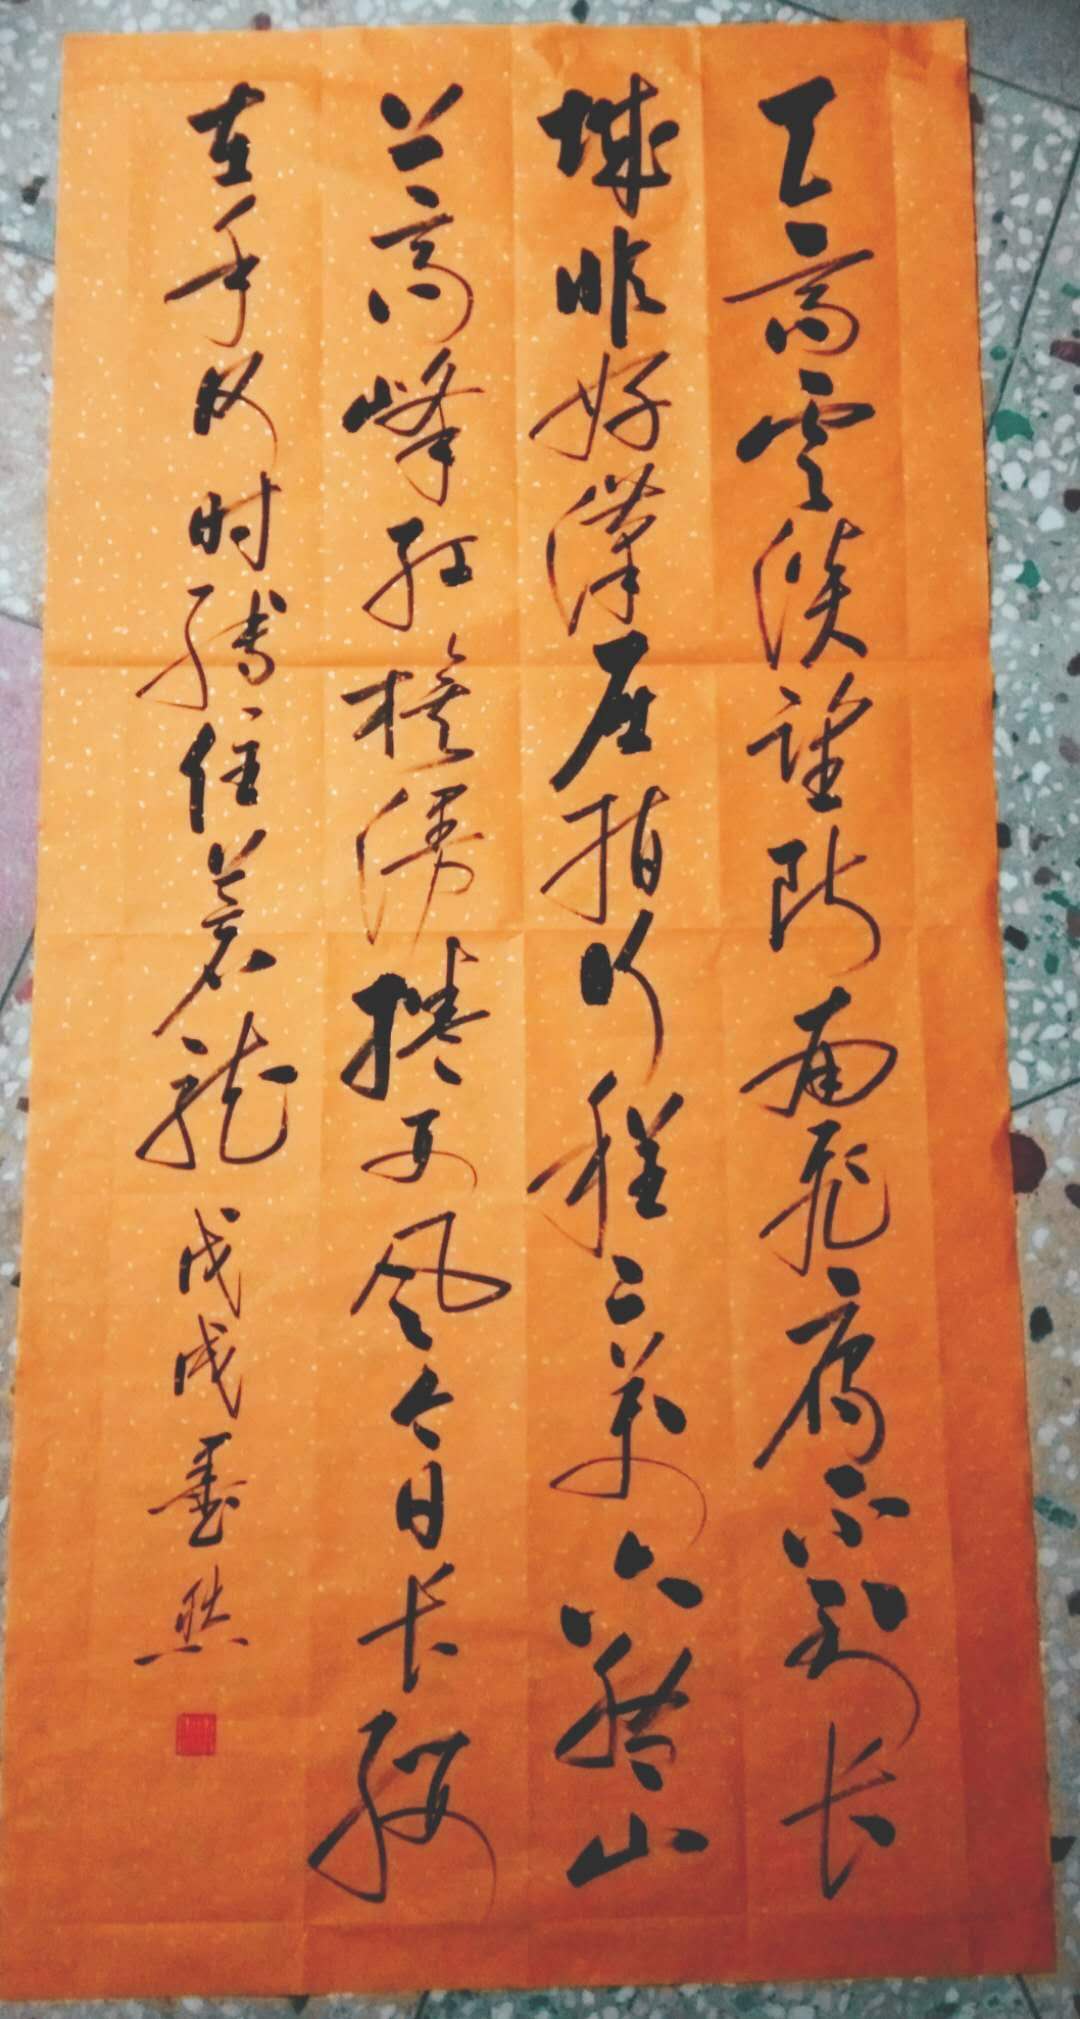 天高云淡望断南飞雁不到长
城非好汉屈指行程二万六盘山
上高峰红旗漫捲西风今日长缨
在手何时缚住苍龙 戊戌墨然